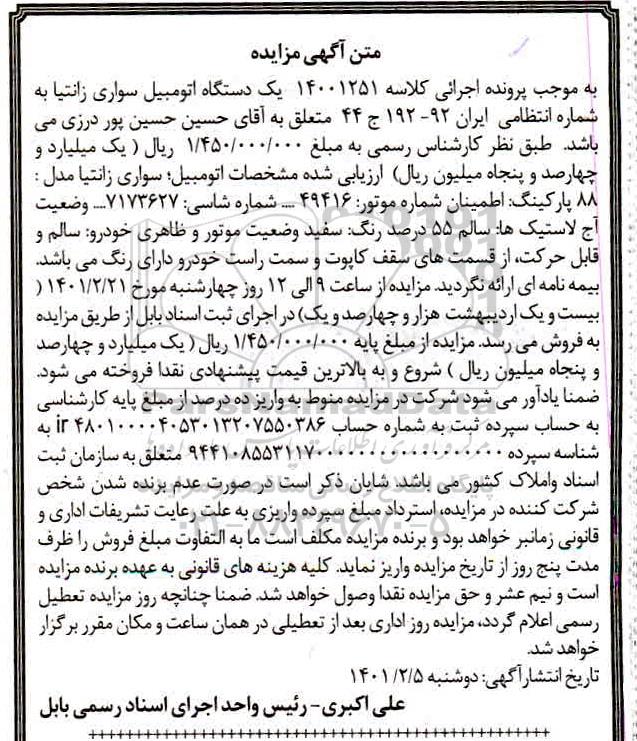 متن آگهی مزایده
به موجب پرونده اجرائی کلاسه ۱۴۰۰۱۲۵۱ یک دستگاه اتومبیل سواری زانتیا به
شماره انتظامی ایران ۹۲- ۱۹۲ ج ۴۴ متعلق به آقای حسین حسین پور درزی می
باشد. طبق نظر کارشناس رسمی به مبلغ ۱/۴۵۰/۰۰۰/۰۰۰ ریال ( یک میلیارد و
چهارصد و پنجاه میلیون ریال) ارزیابی شده مشخصات اتومبیل؛ سواری زانتیا مدل :
۸۸ پارکینگ: اطمینان شماره موتور: ۴۹۴۱۶ ــ شماره شاسی: ۷۱۷۳۶۲۷ــ وضعیت
آج لاستیک ها: سالم ۵۵ درصد رنگ: سفید وضعیت موتور و ظاهری خودرو: سالم و
قابل حرکت، از قسمت های سقف کاپوت و سمت راست خودرو دارای رنگ می باشد.
بیمه نامه ای ارائه نگردید. مزایده از ساعت ۹ الی ۱۲ روز چهارشنبه مورخ ۱۴۰۱/۲/۲۱ (
بیست و یک اردیبهشت هزار و چهارصد و یک) در اجرای ثبت اسناد بابل از طریق مزایده
به فروش می رسد. مزایده از مبلغ پایه ۱/۴۵۰/۰۰۰/۰۰۰ ریال ( یک میلیارد و چهارصد
و پنجاه میلیون ریال ) شروع و به بالاترین قیمت پیشنهادی نقدا فروخته می شود.
ضمنا یادآور می شود شرکت در مزایده منوط به واریز ده درصد از مبلغ پایه کارشناسی
به حساب سپرده ثبت به شماره حساب ir ۴۸۰۱۰۰۰۰۴۰۵۳۰۱۳۲۰۷۵۵۰۳۸۶ به
شناسه سپرده متعلق به سازمان ثبت
اسناد واملاک کشور می باشد. شایان ذکر است در صورت عدم برنده شدن شخص
شرکت کننده در مزایده، استرداد مبلغ سپرده واریزی به علت رعایت تشریفات اداری و
قانونی زمانبر خواهد بود و برنده مزایده مکلف است ما به التفاوت مبلغ فروش را ظرف
مدت پنج روز از تاریخ مزایده واریز نماید. کلیه هزینه های قانونی به عهده برنده مزایده
است و نیم عشر و حق مزایده نقدا وصول خواهد شد. ضمنا چنانچه روز مزایده تعطیل
رسمی اعلام گردد، مزایده روز اداری بعد از تعطیلی در همان ساعت و مکان مقرر برگزار
خواهد شد.
تاریخ انتشارآگهی: دوشنبه ۱۴۰۱/۲/۵
علی اکبری- رئیس واحد اجرای اسناد رسمی بابل
ParsNamadData
۰۲۱-۸۸۳۴۹۶۷۰-۵